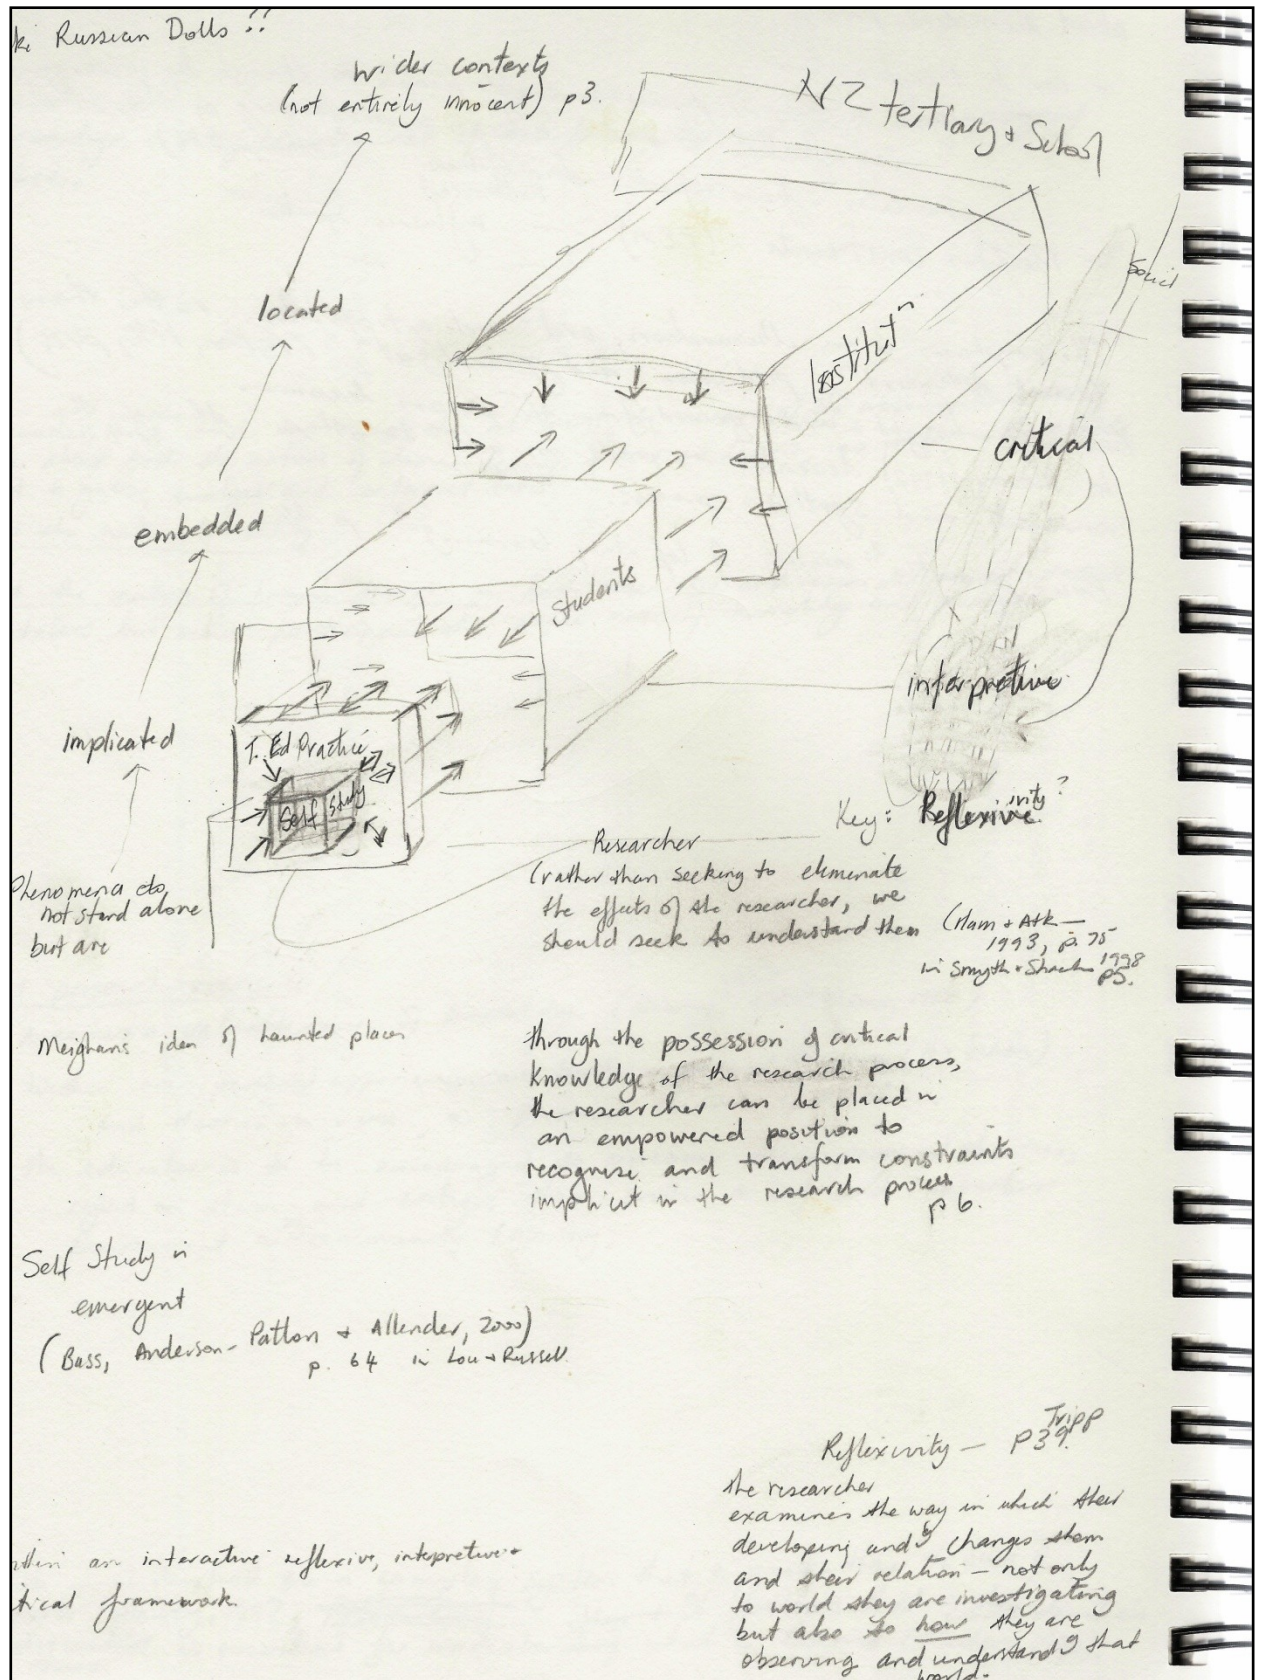 Russian Dolls !!
Wider contexts
(not entirely innocent) p3.
NZ tertiary + School
located
Institutⁿ
critical
embedded
Students
interpretive
implicated
T. Ed Practice
Self Study
Key: Reflexive ivity?
Researcher
(rather than seeking to eliminate
the effects of the researcher, we
should seek to understand them
(Ham + Atk —
1993, p. 75
in Smyth + Shack 1998
p5.
Phenomena do
not stand alone
but are
Meighan's idea of haunted places
through the possession of critical
knowledge of the research process,
the researcher can be placed in
an empowered position to
recognise and transform constraints
implicit in the research process
p 6.
Self Study is
emergent
(Bass, Anderson-Patton + Allender, 2000)
p. 64 in Lou + Russell.
Reflexivity — p39. Tripp
the researcher
examines the way in which their
developing undᵍ changes them
and their relation — not only
to world they are investigating
but also to how they are
observing and understandᵍ that
world.
an interactive reflexive, interpretive +
framework